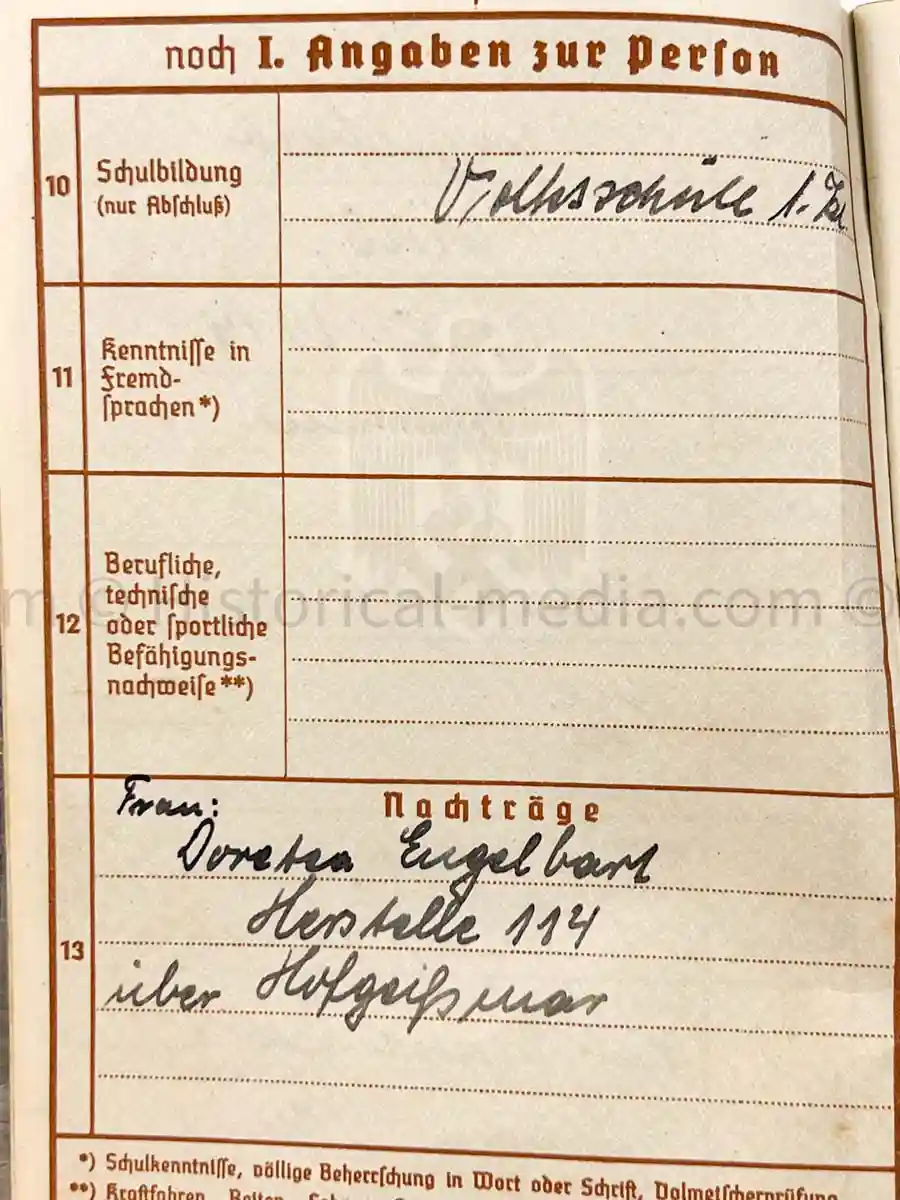 noch I. Angaben zur Person
10
Schulbildung
(nur Abschluß)
Volksschule 1. Kl.
11
Kenntnisse in
Fremd-
sprachen*)
12
Berufliche,
technische
oder sportliche
Befähigungs-
nachweise**)
m © Historical-media.com ©
13
Nachträge
Frau:
Doretea Engelbart
Herstelle 114
über Hofgeißmar
*) Schulkenntnisse, völlige Beherrschung in Wort oder Schrift, Dolmetscherprüfung
**) Kraftfahren, Reiten,